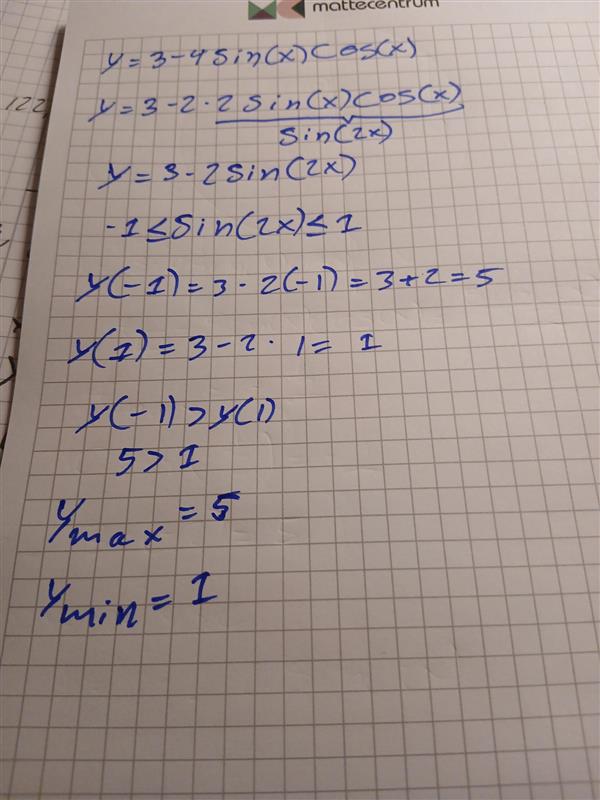 mattecentrum
y = 3 - 4 sin(x) cos(x)
122
y = 3 - 2 · 2 sin(x) cos(x)
sin(2x)
y = 3 - 2 sin(2x)
-1 ≤ sin(2x) ≤ 1
y(-1) = 3 - 2(-1) = 3 + 2 = 5
y(1) = 3 - 2 · 1 = 1
y(-1) > y(1)
5 > 1
y max = 5
y min = 1